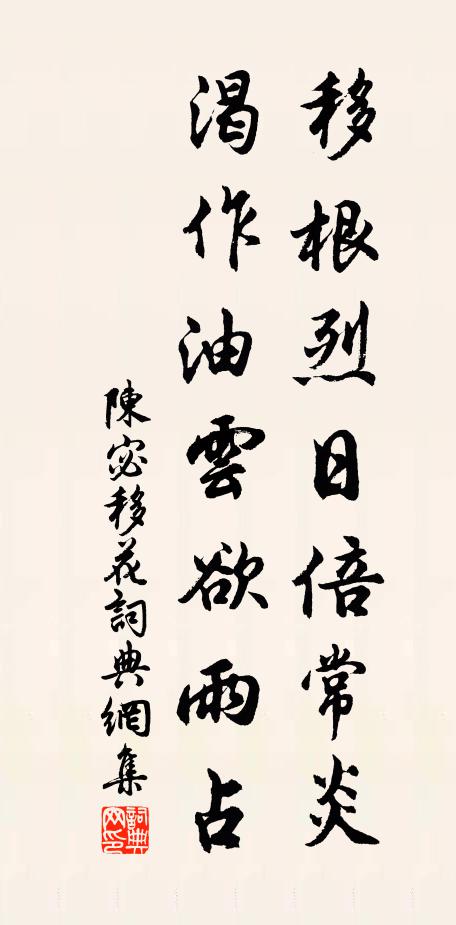 移根烈日倍常炎
渴作油雲欲雨占
陳宓移花詞典網集
詞典網印